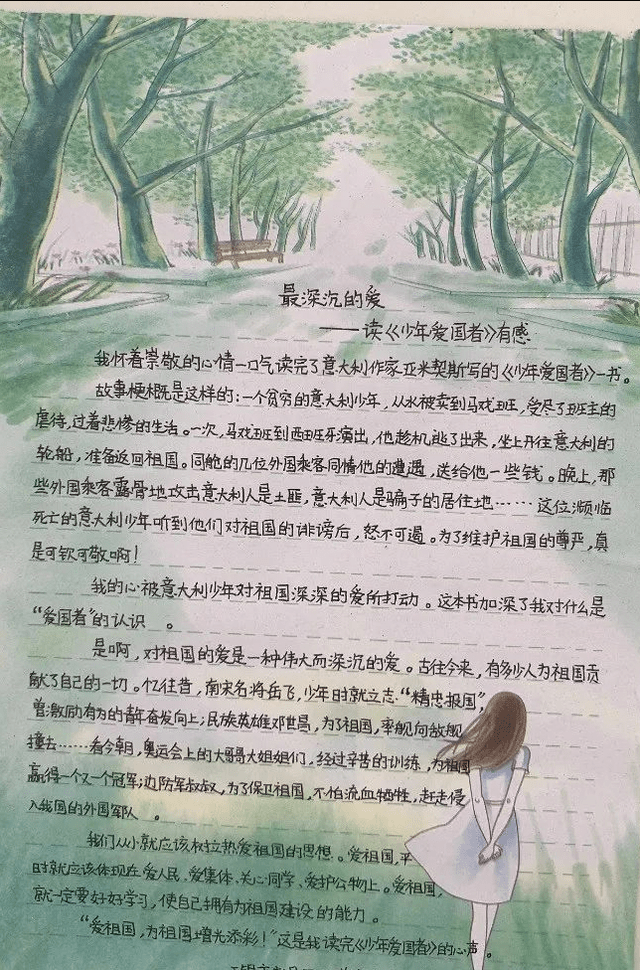 最深沉的爱
——读《少年爱国者》有感
我怀着崇敬的心情一口气读完了意大利作家亚米契斯写的《少年爱国者》一书。
故事梗概是这样的:一个贫穷的意大利少年,从小被卖到马戏班,受尽了班主的
虐待,过着悲惨的生活。一次,马戏班到西班牙演出,他趁机逃了出来,坐上开往意大利的
轮船,准备返回祖国。同舱的几位外国乘客同情他的遭遇,送给他一些钱。晚上,那
些外国乘客露骨地攻击意大利人是土匪,意大利人是骗子的居住地……这位濒临
死亡的意大利少年听到他们对祖国的诽谤后,怒不可遏。为了维护祖国的尊严,真
是可钦可敬啊!
我的心被意大利少年对祖国深深的爱所打动。这本书加深了我对什么是
“爱国者”的认识 。
是啊,对祖国的爱是一种伟大而深沉的爱。古往今来,有多少人为祖国贡
献了自己的一切。忆往昔,南宋名将岳飞,少年时就立志“精忠报国”,
曾激励有为的青年奋发向上;民族英雄邓世昌,为了祖国,率舰向敌舰
撞去……看今朝,奥运会上的大哥哥大姐姐们,经过辛苦的训练,为祖国
赢得一个又一个冠军;边防军叔叔,为了保卫祖国,不怕流血牺牲,赶走侵
入我国的外国军队 。
我们从小就应该树立热爱祖国的思想。爱祖国,平
时就应该体现在爱人民、爱集体、关心同学、爱护公物上。爱祖国,
就一定要好好学习,使自己拥有为祖国建设的能力。
“爱祖国,为祖国增光添彩!”这是我读完《少年爱国者》的心声。